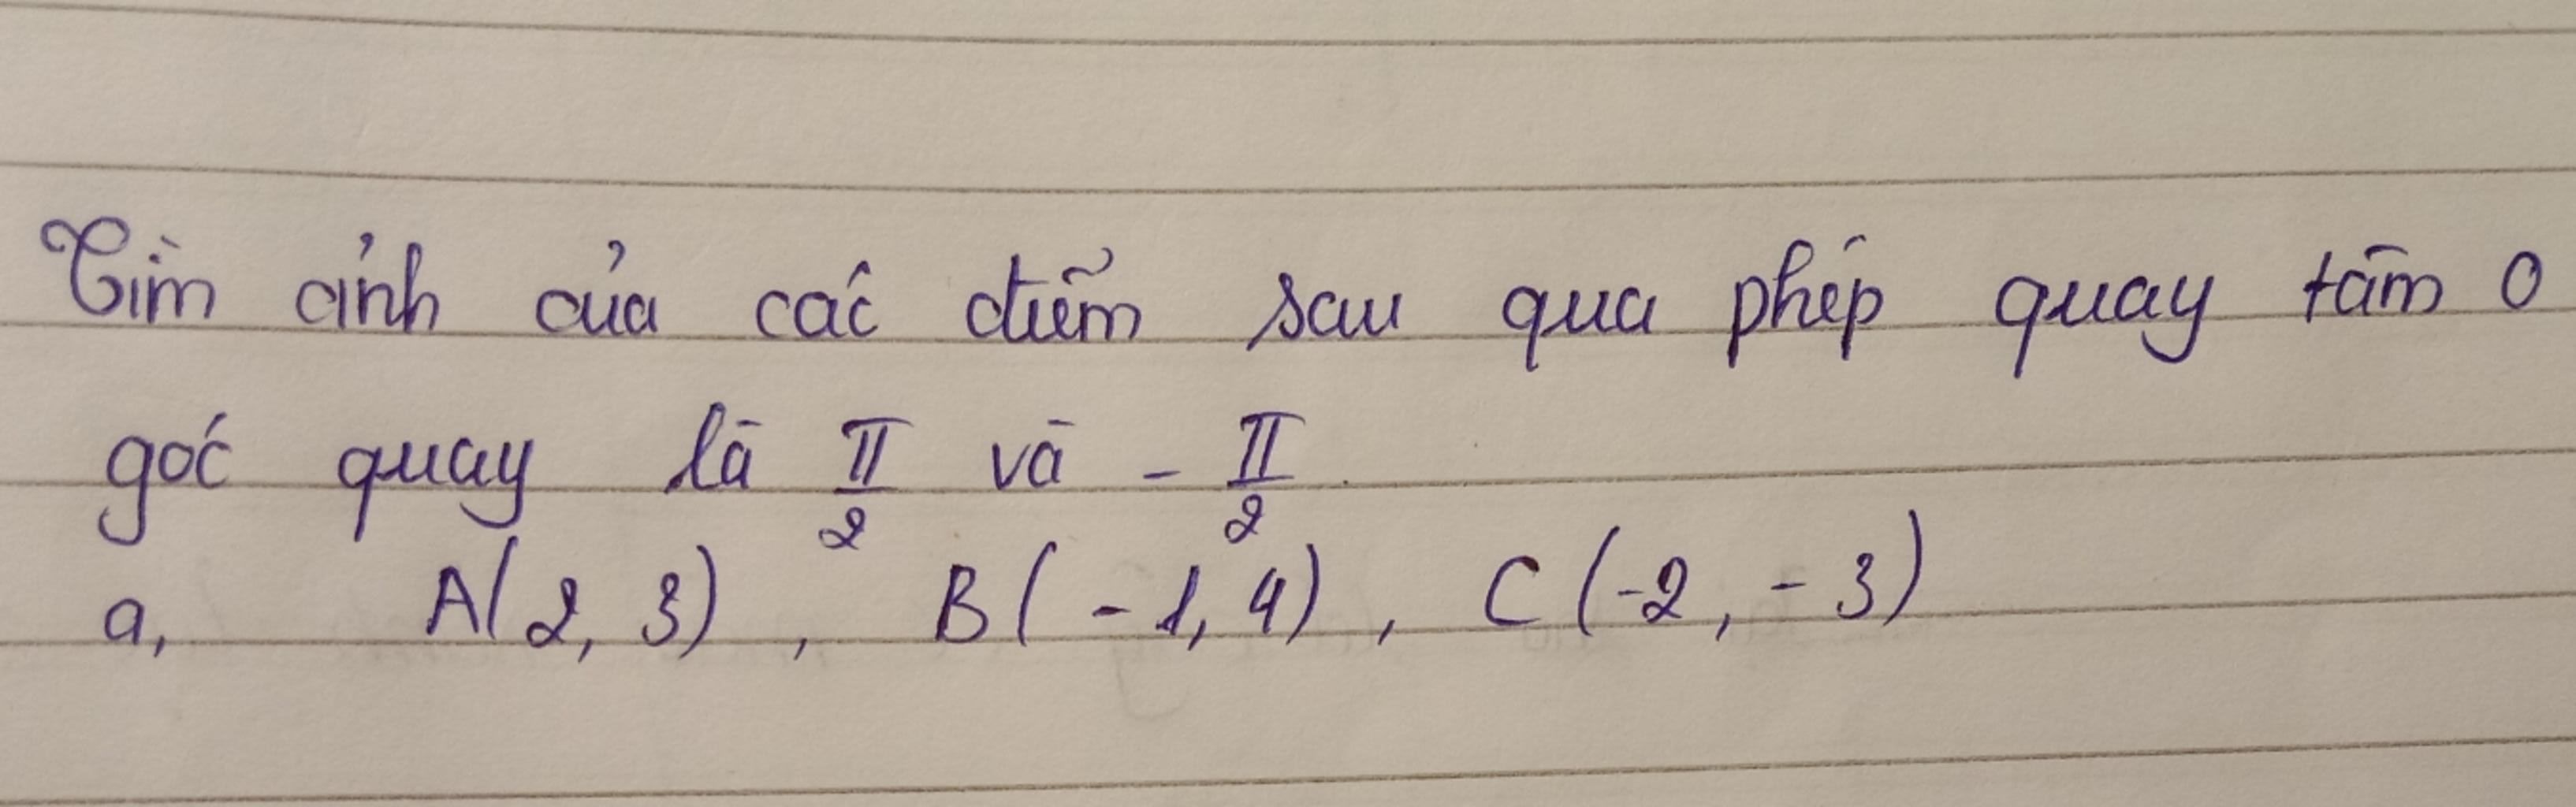 Tìm ảnh của các điểm sau qua phép quay tâm O
góc quay là π/2 và - π/2.
a, A(2, 3), B(-1, 4), C(-2, -3)